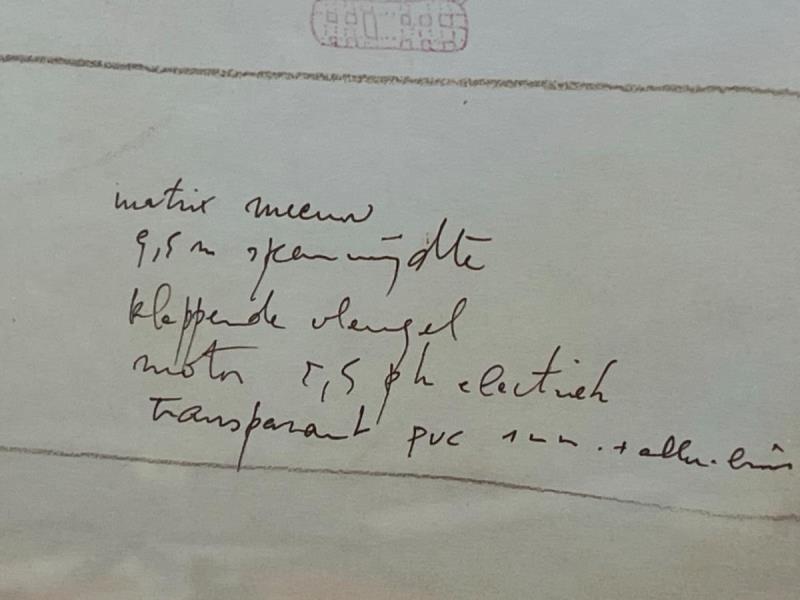 matrix meeuw
9,5 m spanwijdte
klappende vleugel
motor 5,5 ph electriek
transparant PVC 1 mm. + allu.